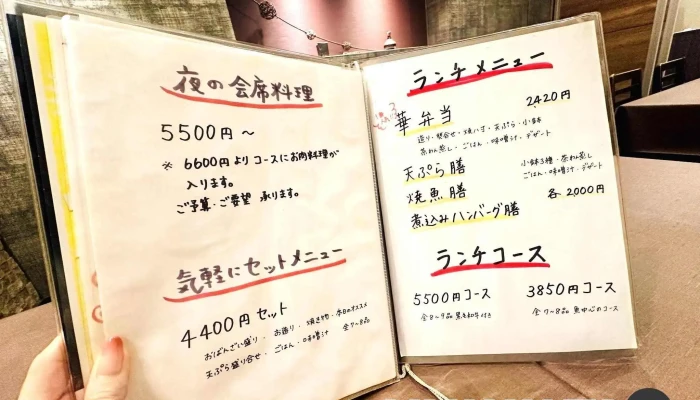 夜の会席料理
5500円〜
※ 6600円よりコースにお肉料理が
入ります。
ご予算・ご要望 承ります。
気軽にセットメニュー
4400円 セット
おばんざい盛り・お造り・焼き物・本日のオススメ
天ぷら盛り合せ・ごはん・味噌汁 全7〜8品
ランチメニュー
華弁当 2420円
造り・焚合せ・焼八寸・天ぷら・小鉢
茶わん蒸し・ごはん・味噌汁・デザート
天ぷら膳 小鉢3種・茶わん蒸し
焼魚膳 ごはん・味噌汁・デザート
煮込みハンバーグ膳 各2000円
ランチコース
5500円コース 3850円コース
全8〜9品 黒毛和牛付き 全7〜8品 魚中心のコース